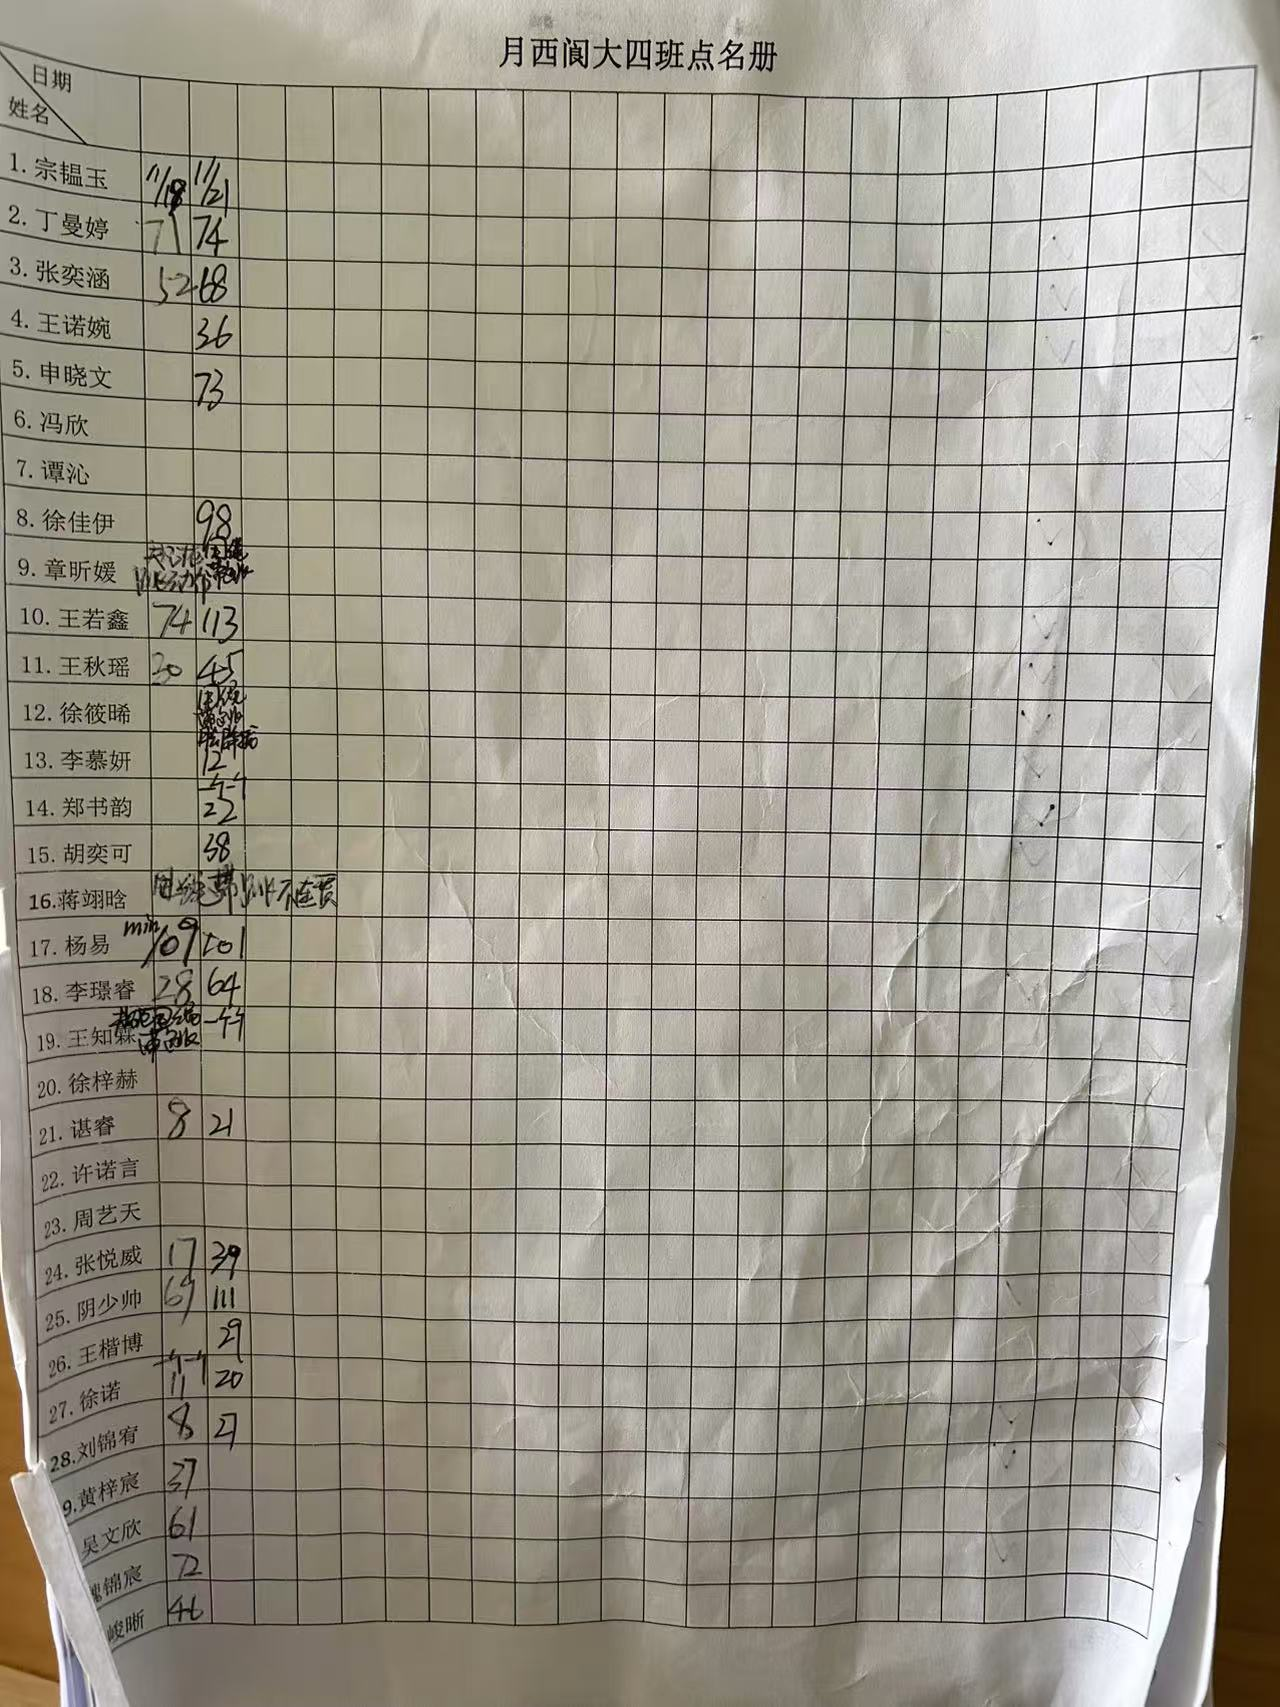 月西阆大四班点名册
日期
姓名
1. 宗韫玉 11/18 11/21
2. 丁曼婷 71 74
3. 张奕涵 52 68
4. 王诺婉 36
5. 申晓文 73
6. 冯欣
7. 谭沁
8. 徐佳伊 98
9. 章昕媛
10. 王若鑫 74 113
11. 王秋瑶 30 45
12. 徐筱晞
13. 李慕妍 12
14. 郑书韵 22
15. 胡奕可 38
16. 蒋翊晗 不连贯
17. 杨易 min 109 101
18. 李璟睿 28 64
19. 王知霖 一个个
20. 徐梓赫
21. 谌睿 8 21
22. 许诺言
23. 周艺天
24. 张悦威 17 39
25. 阴少帅 69 111
26. 王楷博 29
27. 徐诺 11 20
28. 刘锦宥 8 27
9. 黄梓宸 37
吴文欣 61
锦宸 72
峻晰 46